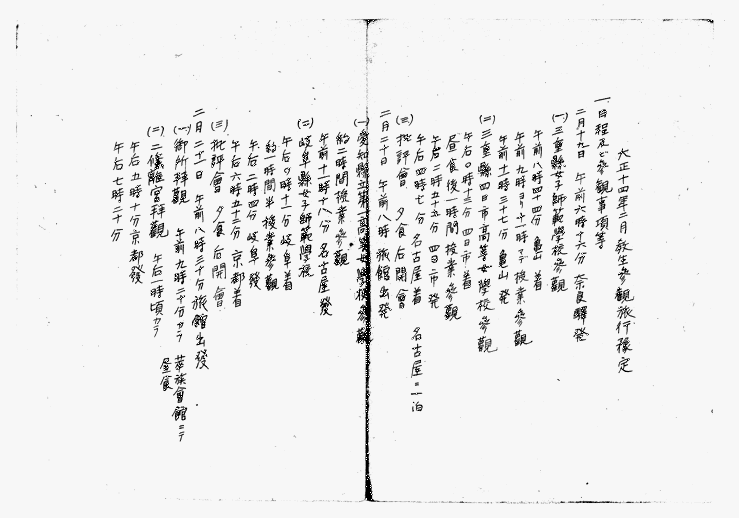 大正十四年二月 教生參觀旅行豫定
一、日程及ビ參觀事項等
二月十九日 午前六時十六分 奈良驛發
(一)三重縣女子師範學校參觀
午前八時四十四分 龜山 着
午前九時ヨリ十一時マデ授業參觀
午前十一時三十七分 龜山 發
(二)三重縣四日市高等女學校參觀
午后〇時十三分 四日市着
昼食後一時間 授業參觀
午后二時五十五分 四日市 發
午后四時七分 名古屋着
(三)批評會 夕食后開會 名古屋ニ一泊
二月二十日 午前八時 旅館出發
(一)愛知縣立第一高等女學校參觀
約二時間授業參觀
午前十一時十八分 名古屋 發
(二)岐阜縣女子師範學校
午后〇時十一分 岐阜着
約一時間半 授業參觀
午后二時四分 岐阜 發
午后六時五十三分 京都着
(三)批評會 夕食后開會
二月二十一日 午前八時三十分旅館出發
(一)御所拜觀 午前九時二十分カラ 華族會館ニテ
昼食
(二)二條離宮拜觀 午后一時頃カラ
午后五時十分京都發
午后七時二十分